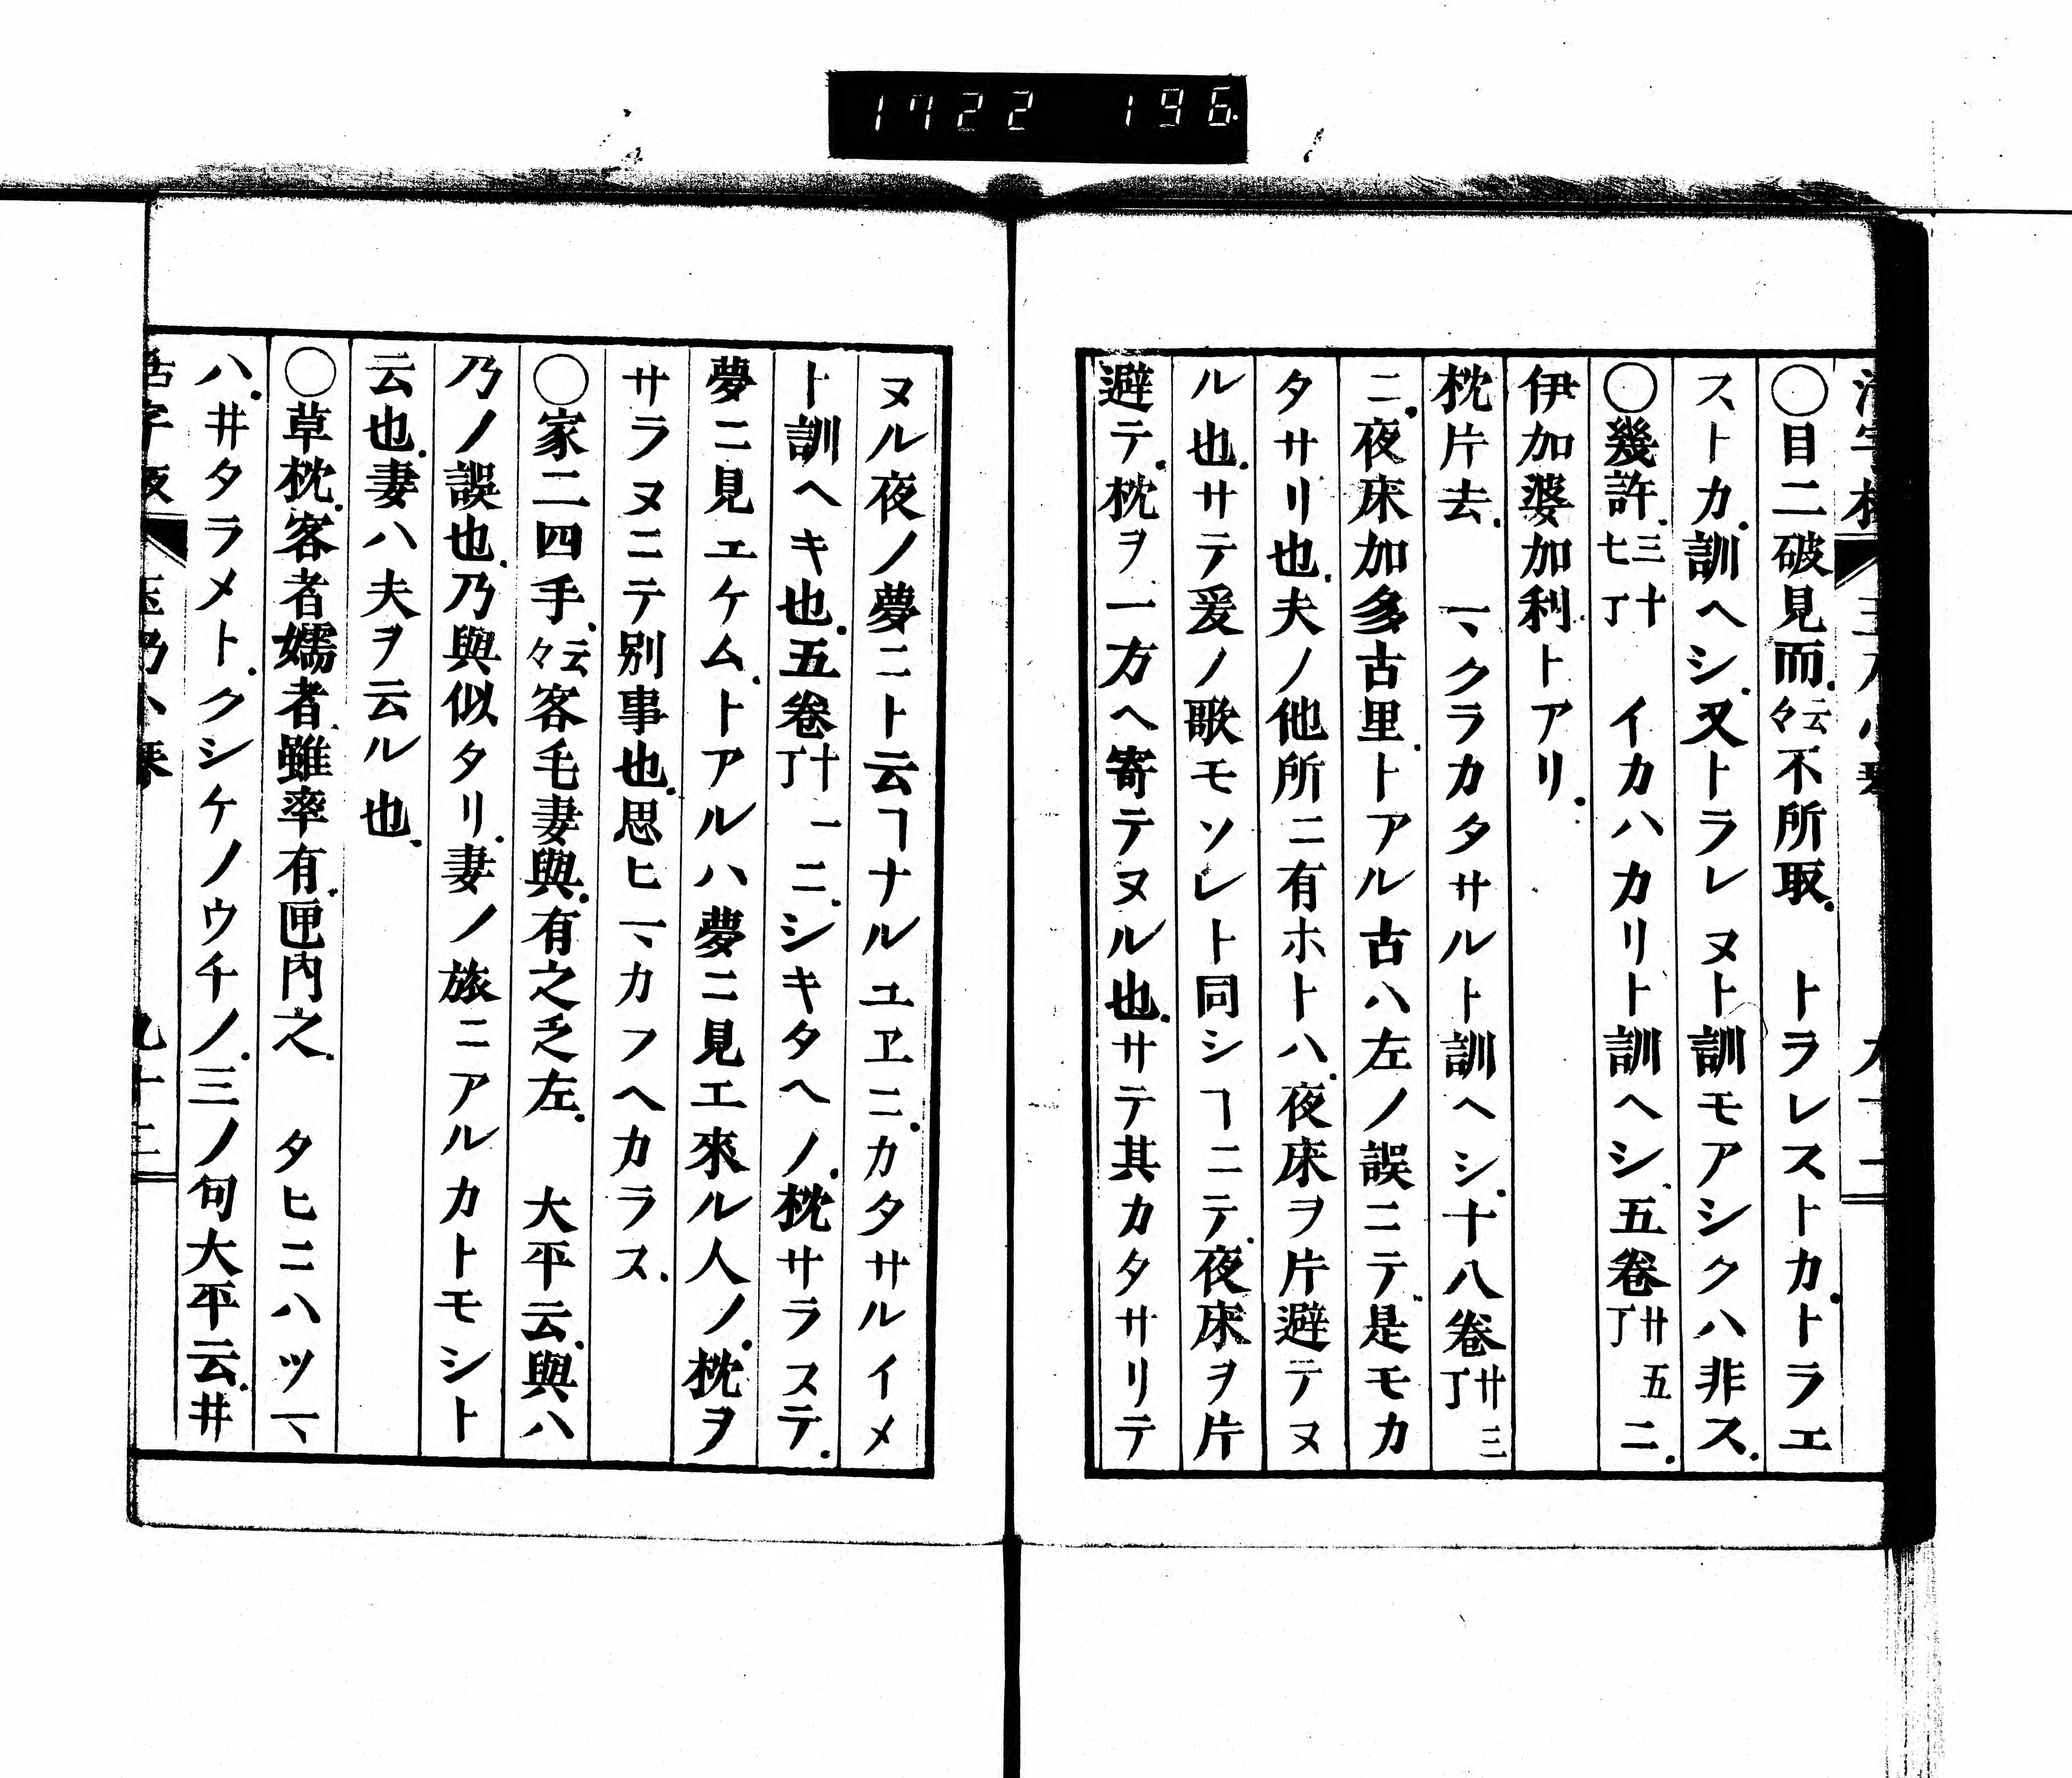 1722 196
〇目二破見而.云々不所取. トラレストカ.トラエ
ストカ.訓ヘシ.又トラレヌト訓モアシクハ非ス.
〇幾許.三十七丁 イカハカリト訓ヘシ.五卷廿五丁ニ.
伊加婆加利.トアリ.
枕片去. マクラカタサルト訓ヘシ.十八卷廿三丁
ニ.夜床加多古里.トアル古ハ左ノ誤ニテ.是モカ
タサリ也.夫ノ他所ニ有ホトハ.夜床ヲ片避テヌ
ル也.サテ爰ノ歌モソレト同シヿニテ.夜床ヲ片
避テ.枕ヲ一方ヘ寄テヌル也.サテ其カタサリテ
ヌル夜ノ夢ニト云ヿナルユヱニ.カタサルイメ
ト訓ヘキ也.五卷十一丁ニ.シキタヘノ.枕サラステ.
夢ニ見エケム.トアルハ夢ニ見エ來ル人ノ.枕ヲ
サラヌニテ別事也.思ヒマカフヘカラス.
〇家二四手.云々客毛妻與.有之乏左. 大平云.與ハ
乃ノ誤也.乃與似タリ.妻ノ旅ニアルカトモシト
云也.妻ハ夫ヲ云ル也.
〇草枕.客者嬬者.雖率有.匣内之. タヒニハツマ
ハ.井タラメト.クシケノウチノ.三ノ句大平云.井